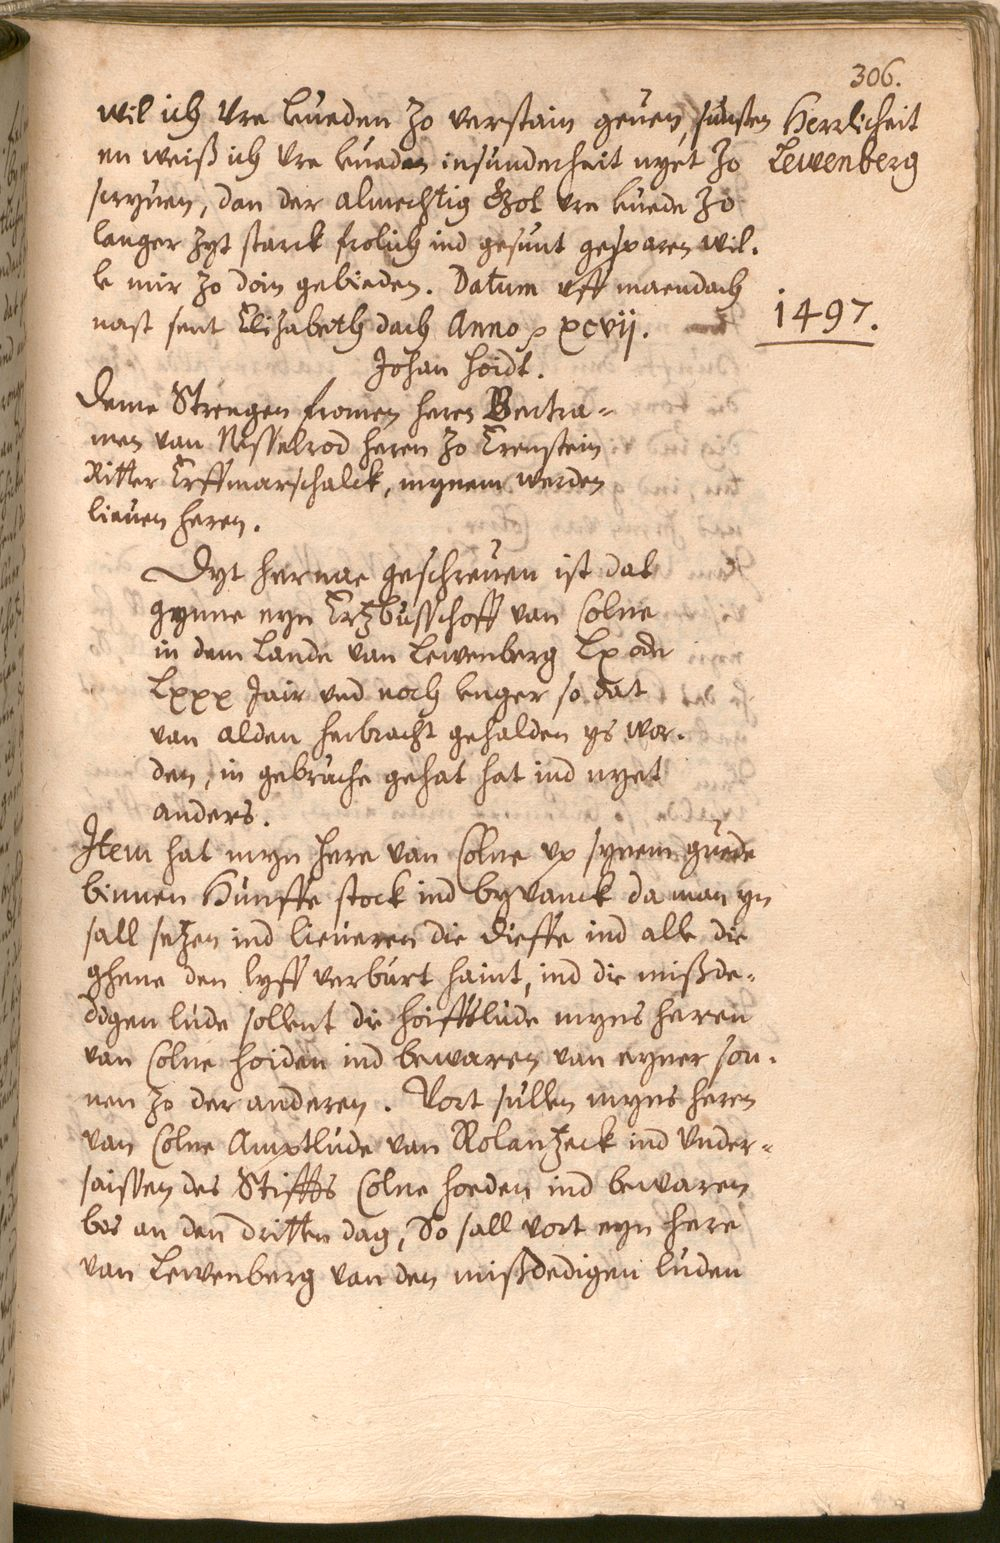 306.
wil ich Ure lieueden zo verstain geuen, sunsten
Herrlicheit
Lewenberg
en weiß ich Ure lieueden insunderheit nyet zo
scryuen, dan der almechtig Got Ure lieuede zo
langer zyt starck frolich ind gesunt gesparen wil.
le mir zo doin gebieden. Datum uff maendach
1497.
nast sent Elizabeth dach Anno p xcvij.
Johan hoidt.
Deme Strengen fromen heren Bertra-
men van Nesselrod heren zo Erenstein
Ritter Erffmarschalck, mynem werden
lieuen heren.
Dyt hernae geschreuen ist dat
gynne eyn Ertzbusschoff van Colne
in dem Lande van Lewenberg Lx oder
Lxxx Jair und noch lenger so dat
van alden herbracht gehalden ys wor.
den, in gebruche gehat hat ind nyet
anders.
Item hat myn here van Colne up synem guede
binnen Hunffe stock ind byvanck da man yn
sall setzen ind lieueren die dieffe ind alle die
ghene den lyff verburt haint, ind die mißde-
digen lude sollent die hoiffslude myns heren
van Colne hoiden ind bewaren van eyner son.
nen zo der anderen. Vort sullen myns heren
van Colne Amptlude van Rolantzeck ind Under-
saissen des Stiffts Colne hoeden ind bewaren
bes an den dritten dag, So sall vort eyn here
van Lewenberg van den mißdedigen luden